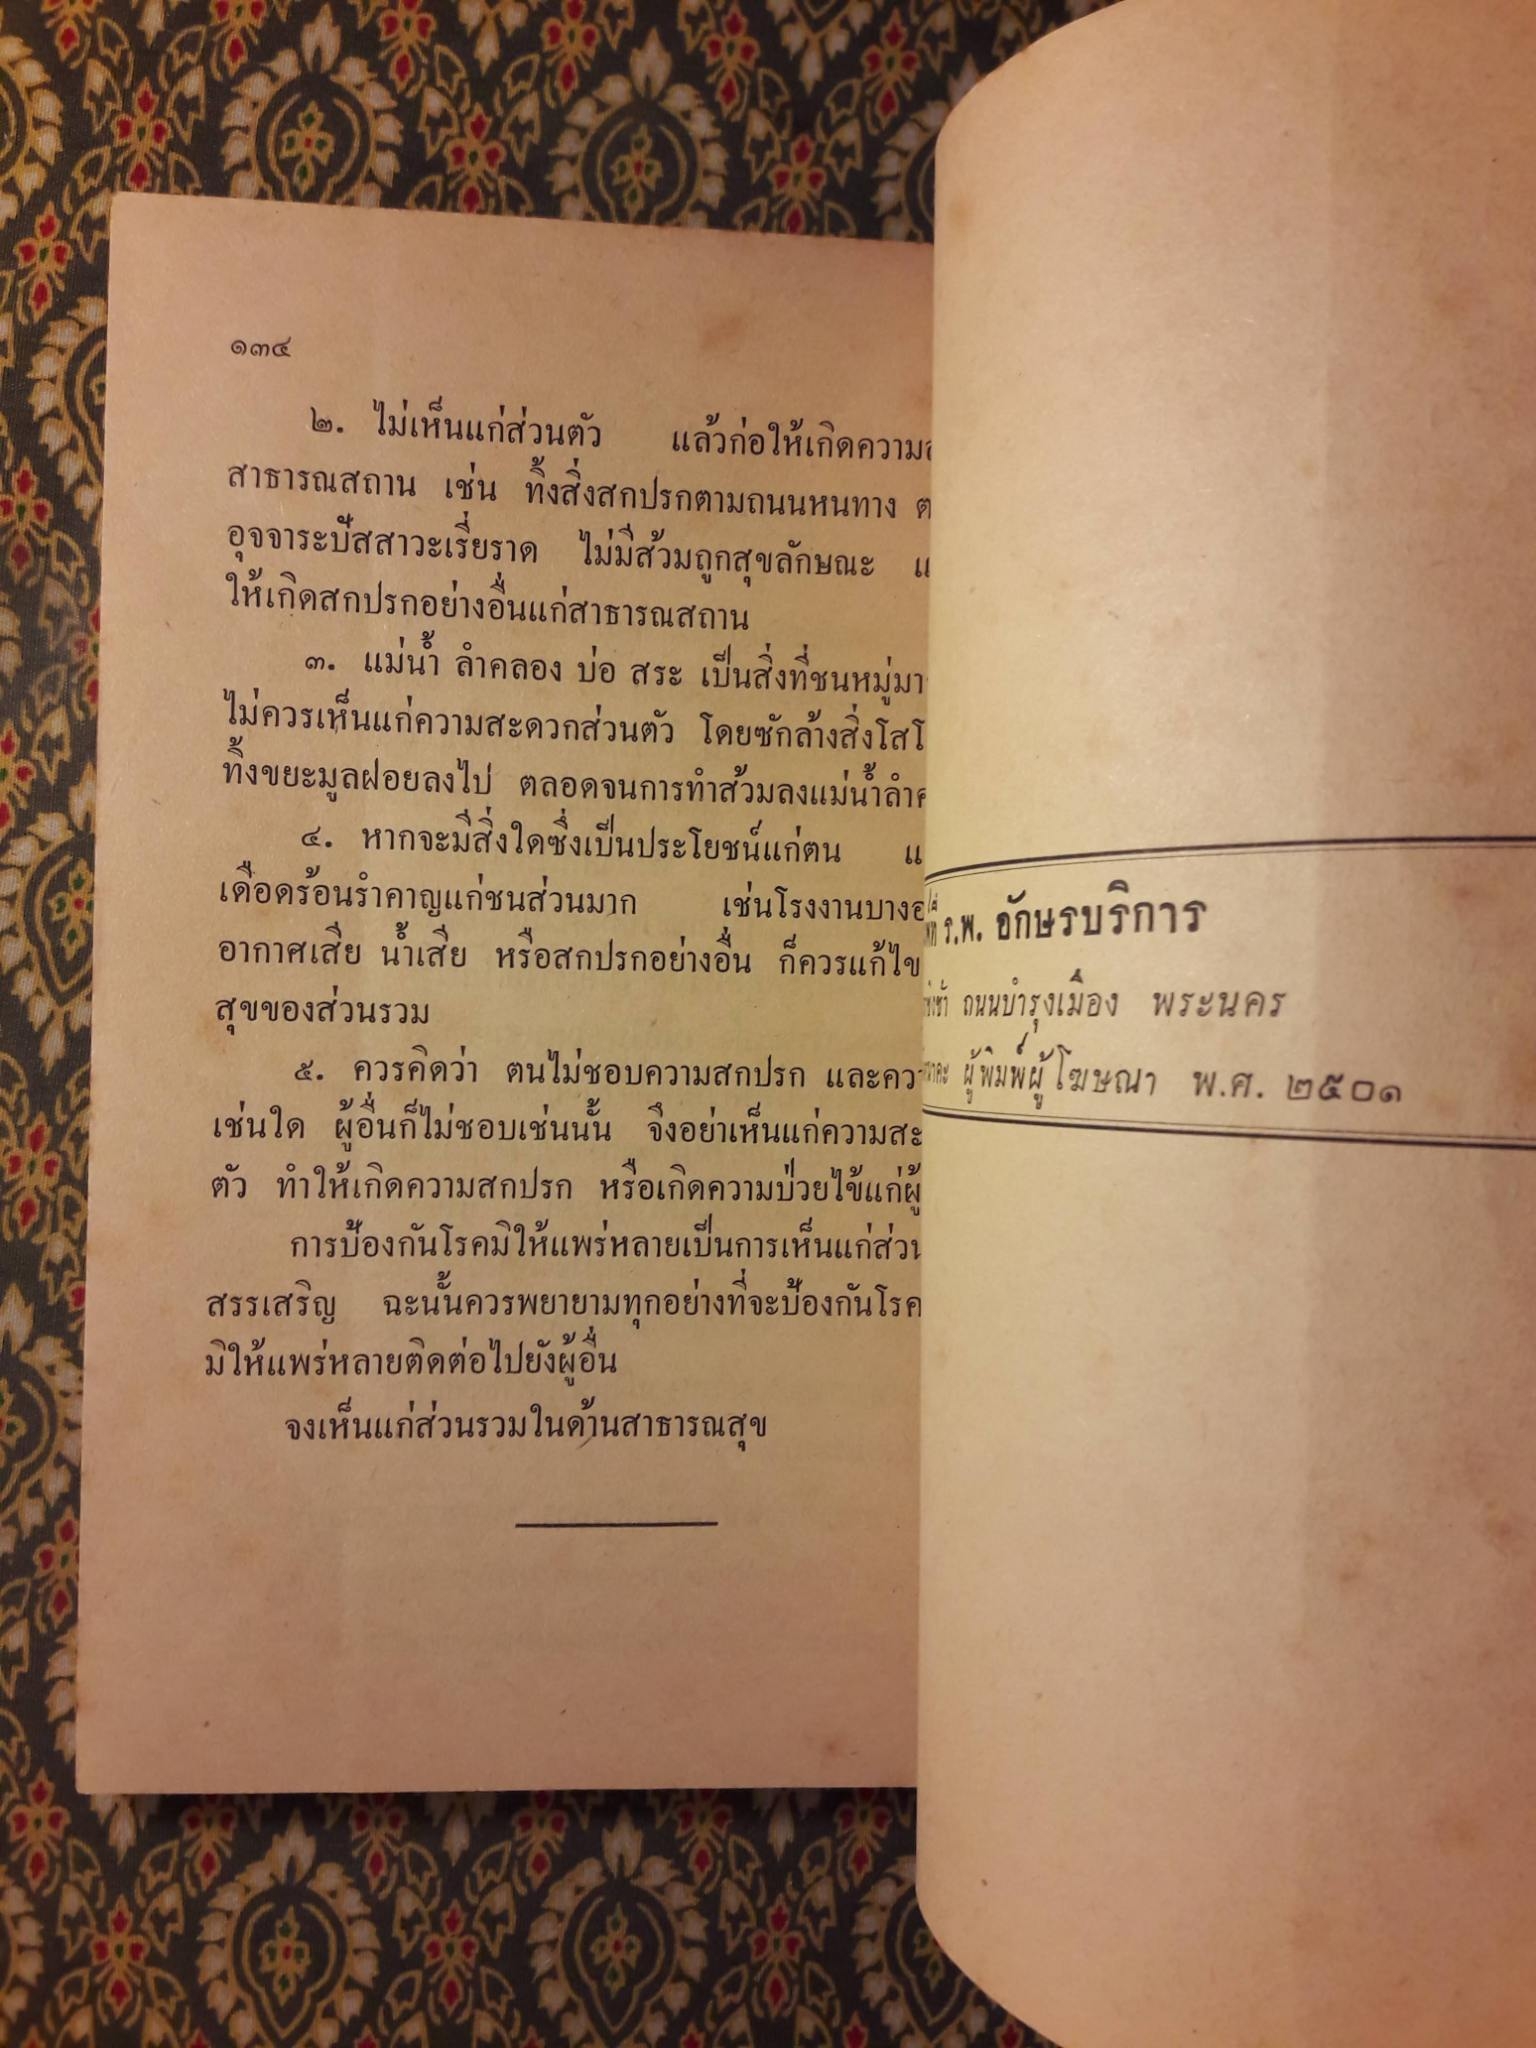 ๑๓๔
๒. ไม่เห็นแก่ส่วนตัว แล้วก่อให้เกิดความ
สาธารณสถาน เช่น ทิ้งสิ่งสกปรกตามถนนหนทาง
อุจจาระปัสสาวะเรี่ยราด ไม่มีส้วมถูกสุขลักษณะ
ให้เกิดสกปรกอย่างอื่นแก่สาธารณสถาน
๓. แม่น้ำ ลำคลอง บ่อ สระ เป็นสิ่งที่ชนหมู่
ไม่ควรเห็นแก่ความสะดวกส่วนตัว โดยซักล้างสิ่ง
ทิ้งขยะมูลฝอยลงไป ตลอดจนการทำส้วมลงแม่น้ำ
๔. หากจะมีสิ่งใดซึ่งเป็นประโยชน์แก่ตน
เดือดร้อนรำคาญแก่ชนส่วนมาก เช่นโรงงาน
อากาศเสีย น้ำเสีย หรือสกปรกอย่างอื่น ก็ควรแก้ไข
สุขของส่วนรวม
๕. ควรคิดว่า ตนไม่ชอบความสกปรก และ
เช่นใด ผู้อื่นก็ไม่ชอบเช่นนั้น จึงอย่าเห็นแก่ความ
ตัว ทำให้เกิดความสกปรก หรือเกิดความป่วยไข้แก่
การป้องกันโรคมิให้แพร่หลายเป็นการเห็นแก่
สรรเสริญ ฉะนั้นควรพยายามทุกอย่างที่จะป้องกันโรค
มิให้แพร่หลายติดต่อไปยังผู้อื่น
จงเห็นแก่ส่วนรวมในด้านสาธารณสุข
ร.พ. อักษรบริการ
ถนนบำรุงเมือง พระนคร
ผู้พิมพ์ผู้โฆษณา พ.ศ. ๒๕๐๑